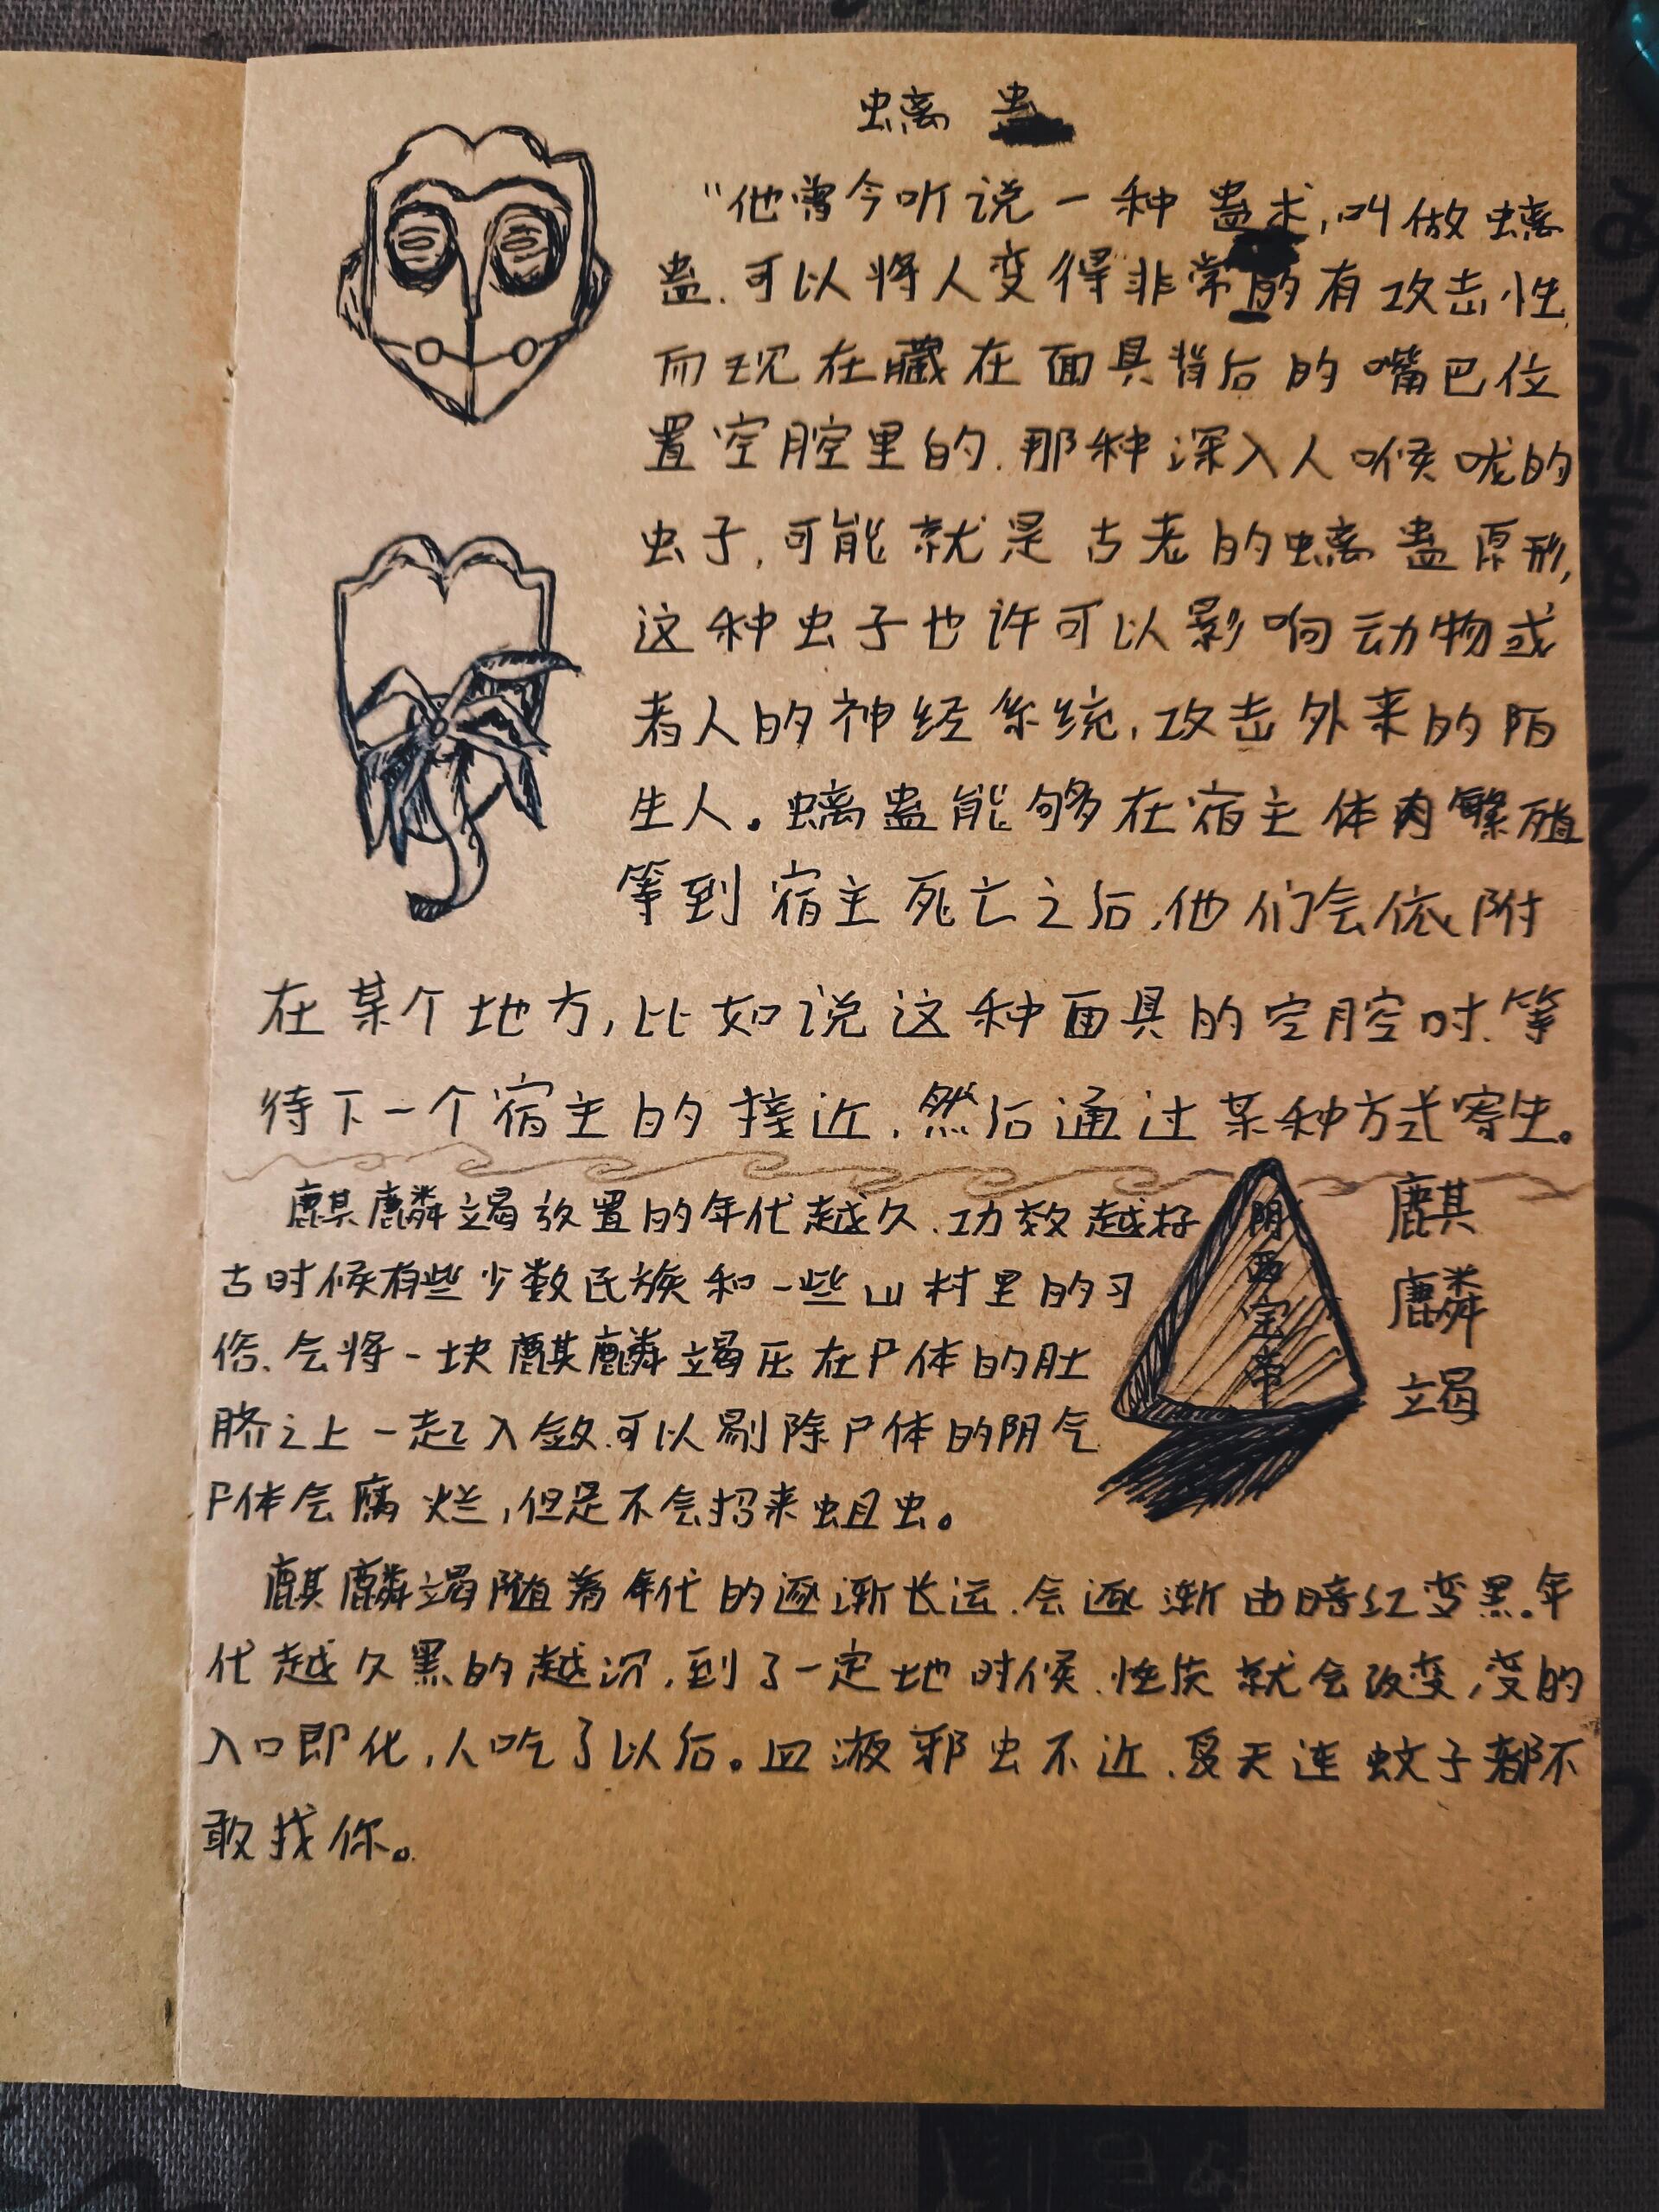 螭 蛊
“他曾今听说一种蛊术,叫做螭
蛊.可以将人变得非常的有攻击性
而现在藏在面具背后的嘴巴位
置空腔里的.那种深入人喉咙的
虫子,可能就是古老的螭蛊原形,
这种虫子也许可以影响动物或
者人的神经系统,攻击外来的陌
生人。螭蛊能够在宿主体内繁殖
等到宿主死亡之后,他们会依附
在某个地方,比如说这种面具的空腔时.等
待下一个宿主的接近.然后通过某种方式寄生。
麒麟竭放置的年代越久.功效越好
古时候有些少数民族和一些山村里的习
俗.会将一块麒麟竭压在尸体的肚
脐之上一起入敛.可以剔除尸体的阴气
尸体会腐烂,但是不会招来蛆虫。
阴西宝帝
麒
麟
竭
麒麟竭随着年代的逐渐长远.会逐渐由暗红变黑.年
代越久黑的越沉,到了一定地时候.性质就会改变,变的
入口即化,人吃了以后。血液邪虫不近.夏天连蚊子都不
敢找你。